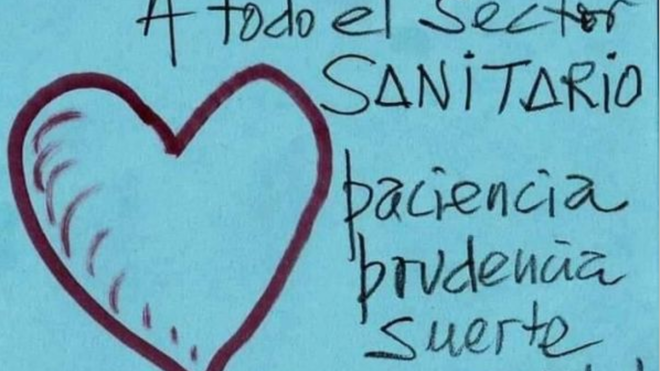 A todo el Sector
SANITARIO
paciencia
prudencia
suerte